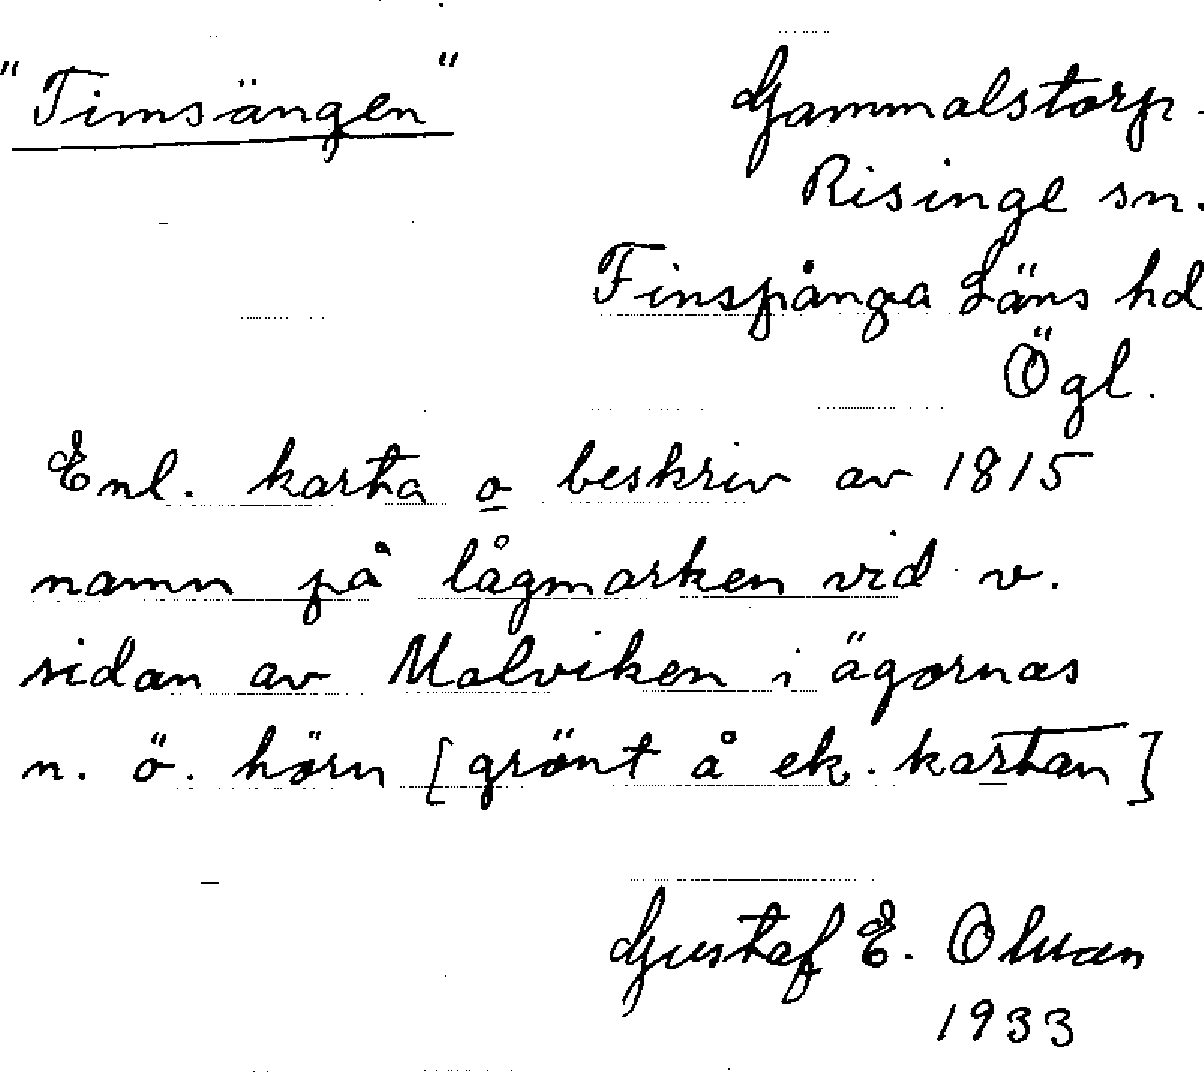 "Timsängen"
Gammalstorp.
Risinge sn.
Finspånga Läns hd
Ögl.
Enl. karta o beskriv av 1815
namn på lågmarken vid v.
sidan av Malviken i ägornas
n. ö. hörn [grönt å ek. kartan]
Gustaf E.
1933